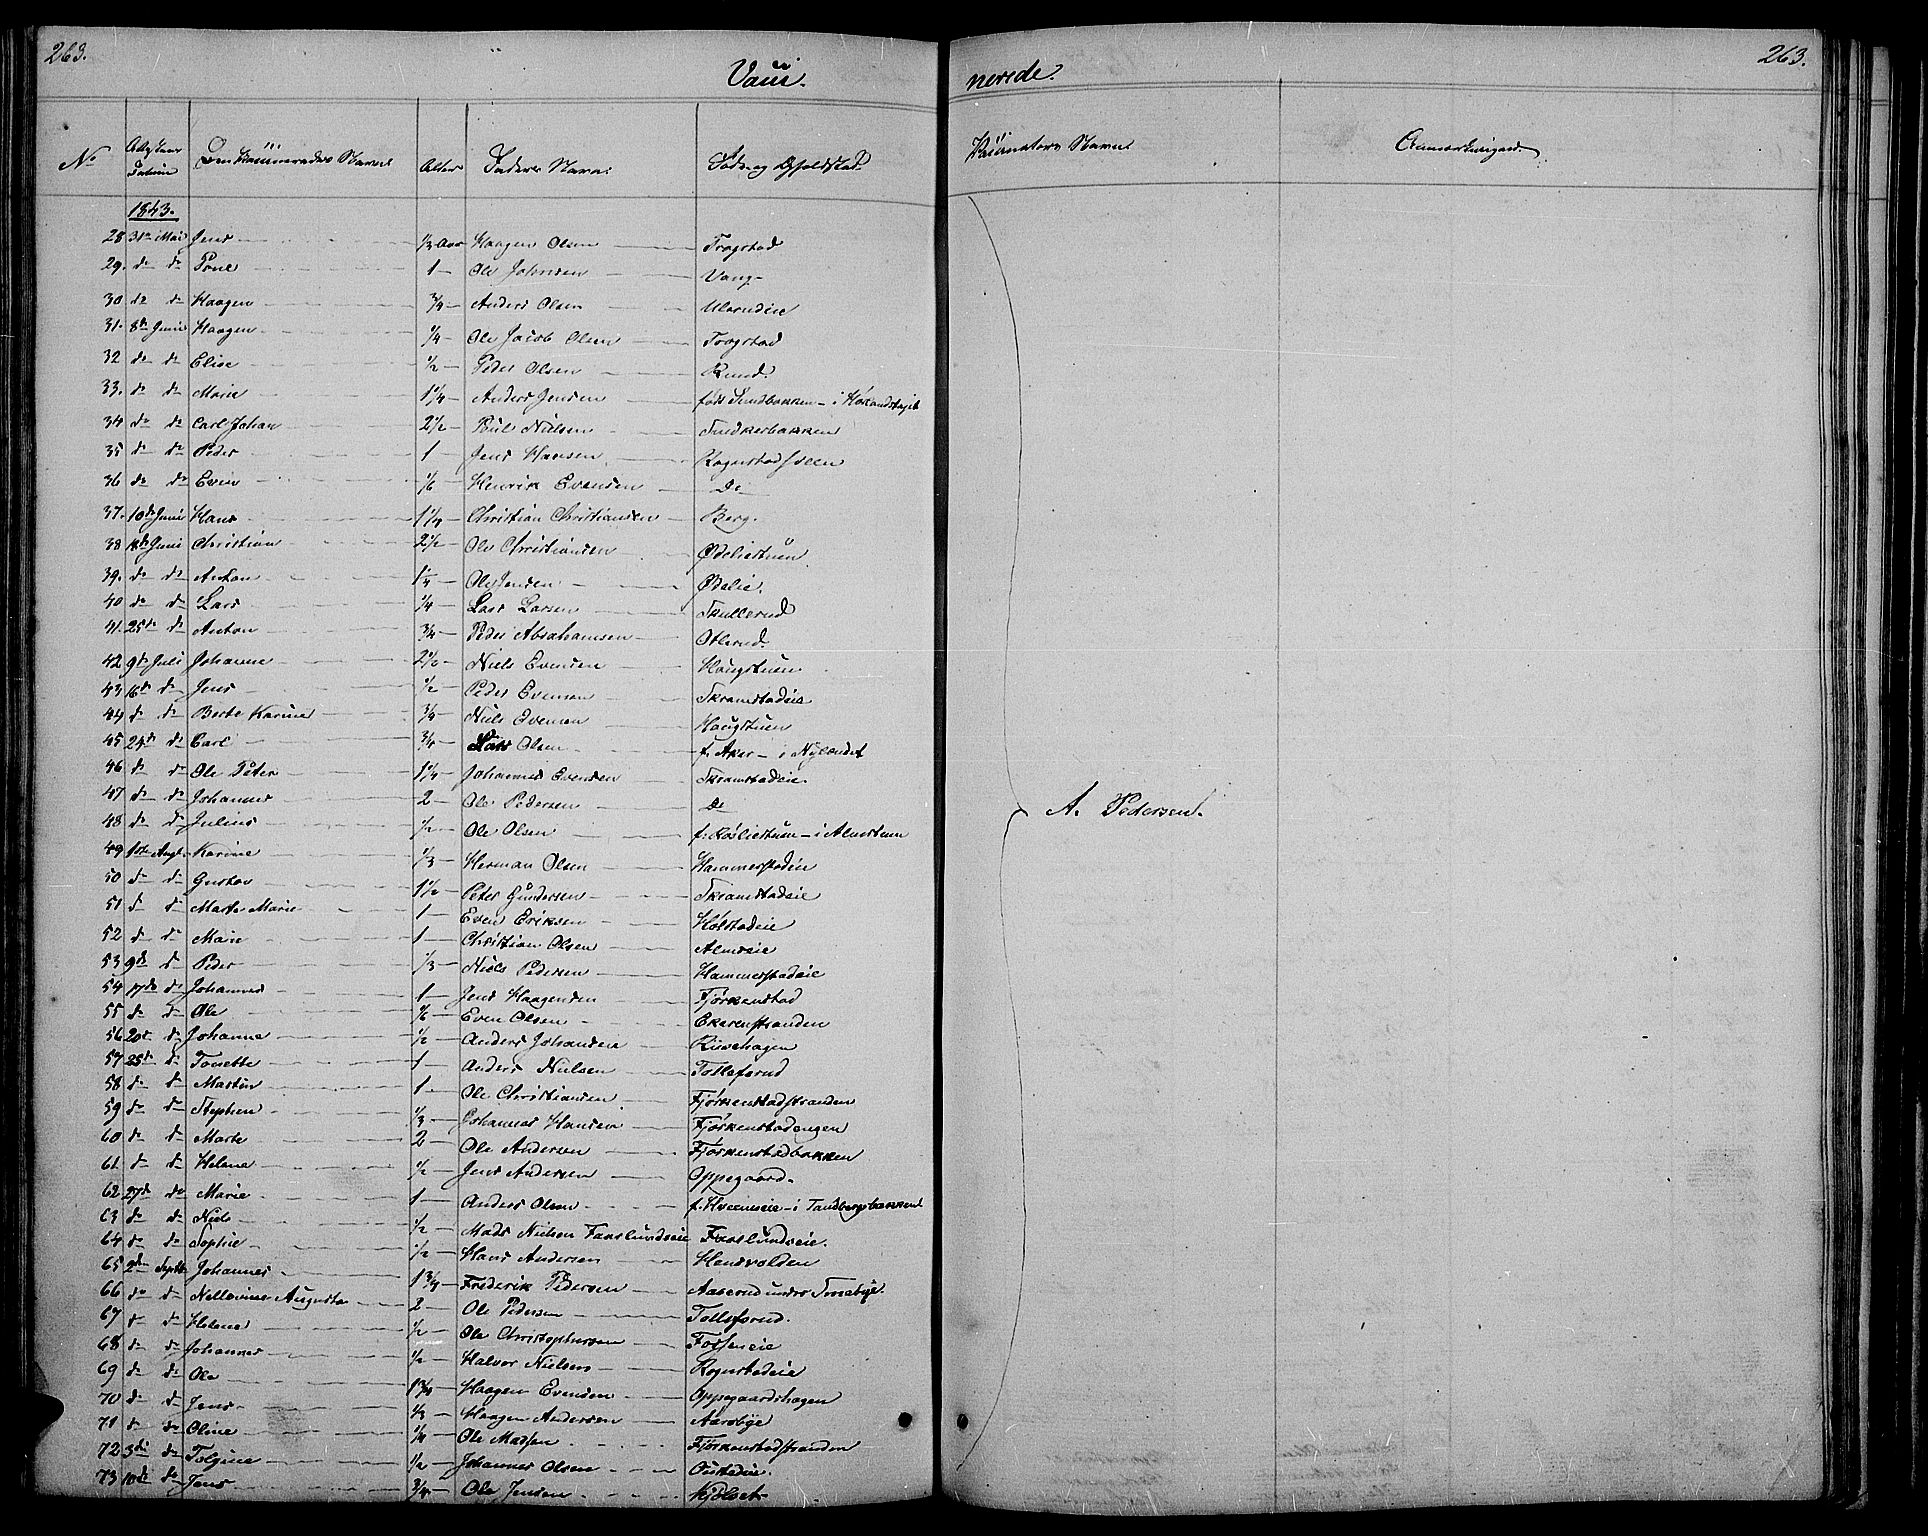 263.
263.
Vacci
nerede.
No
Datum
Navne
Alder
Faders Navn.
Føde og Opholdssted
Vaccinators Navn
Anmærkninger.
1843.
28 31te Mai Jens 1/3 Aar Haagen Olsen Trogstad
29. do do 1 Ole Johnsen Vang
30 do do Haagen 3/4 Anders Olsen Ulerudeie
31. 8de Juni Haagen 1/4 Ole Jacob Olsen Trogstad
32 do do Elise 1/2 Peder Olsen Rund.
33. do do Marie 1 1/4 Anders Jensen født Sandbakken i
34 do do Carl Johan 2 1/2 Poul Nielsen Snedkerbakken
35 do do Peder 1 Jens Hansen Rognstadhveen
36 do do Even 1/6 Henrik Evensen Do
37. 10de Juni Hans 1 1/4 Christian Christiansen Berg.
38 Juni Christian 2 1/2 Ole Christiansen Ødeliestuen
39. do do Anton Ole Jensen Ødelie.
40 do do Lars 1/4 Lars Larsen Skullerud
41. 25de do Anton 3/4 Peder Abrahamsen Otlerud.
42 9de Juli Johanne 2 1/2 Niels Evensen Haugstuen
43 16de do Jens 1/2 Peder Evensen Skramstadeie
44 do do Berte Karine 3/4 Niels Evensen Haugstuen
45 24de do Carl 3/4 Lars Olsen f. Aker i Nylændet
46 do do Ole Peter 1 1/4 Johannes Evensen Skramstadeie.
47 do do Johannes 2 Ole Pedersen Do
48 do do Julius 1/2 Ole Olsen f. Rosliestuen i Almestuen
49 1ste Augt. Karine 1/3 Herman Olsen Hammerstadeie
50 do do Gustav 1 1/2 Peter Gundersen Skramstadeie
51 do do Marte Marie 1 Even Eriksen Holstadeie
52 do do Marie 1 Christian Olsen Almeeie
53 9de do Peder 1/3 Niels Pedersen Hammerstadeie
54 17de do Johannes 1 Jens Haagensen Fjørkenstad
55 do do Ole 1/6 Even Olsen Ekerenstranden
56 20de do Johanne 1/2 Anders Johansen Kisehagen
57 25de do Tonette 1 Anders Nielsen Tollefsrud
58 do do Martin 1 Ole Christiansen Fjørkenstadstranden
59 do do Stephen 1/3 Johannes Hansen Fjørkenstadengen
60 do do Marte 2 Ole Andersen Fjørkenstadbakken
61. do do Helene 1/2 Jens Andersen Oppegaard.
62 27de do Marie 1 Anders Olsen f. Hveemseie i Tandbergsbakken
63 do do Niels 1/2 Mads Nielsen Faaslundseie Faaslundseie.
64 do do Sophie 1/2 Hans Andersen Hensvolden
65 2den Septbr Johannes 1 3/4 Frederik Pedersen Aaserud under Tomebye.
66 do do Nellevine Augusta 2 Ole Pedersen Tollefsrud.
67 do do Helene 1/2 Ole Christophersen Fosseneie
68 do do Johannes 1/2 Halvor Nielsen Rognstadeie
69 do do Ole 1 3/4 Haagen Evensen Oppegaardshagen
70 do do Jens 1/3 Haagen Andersen Aarsbye
71 do do Oline 1/4 Ole Madsen Fjørkenstadstranden
72 3die do Tolgine 1/2 Johannes Olsen Oustadeie.
73 10de do Jens 3/4 Ole Jensen Kjølset
A. Pedersen.